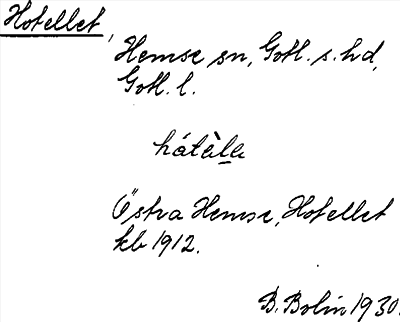 Hotellet,
Hemse sn, Gotl. s. hd,
Gotl. l.
håtèlle
Östra Hemse, Hotellet
kb 1912.
B. Bolin 1930.